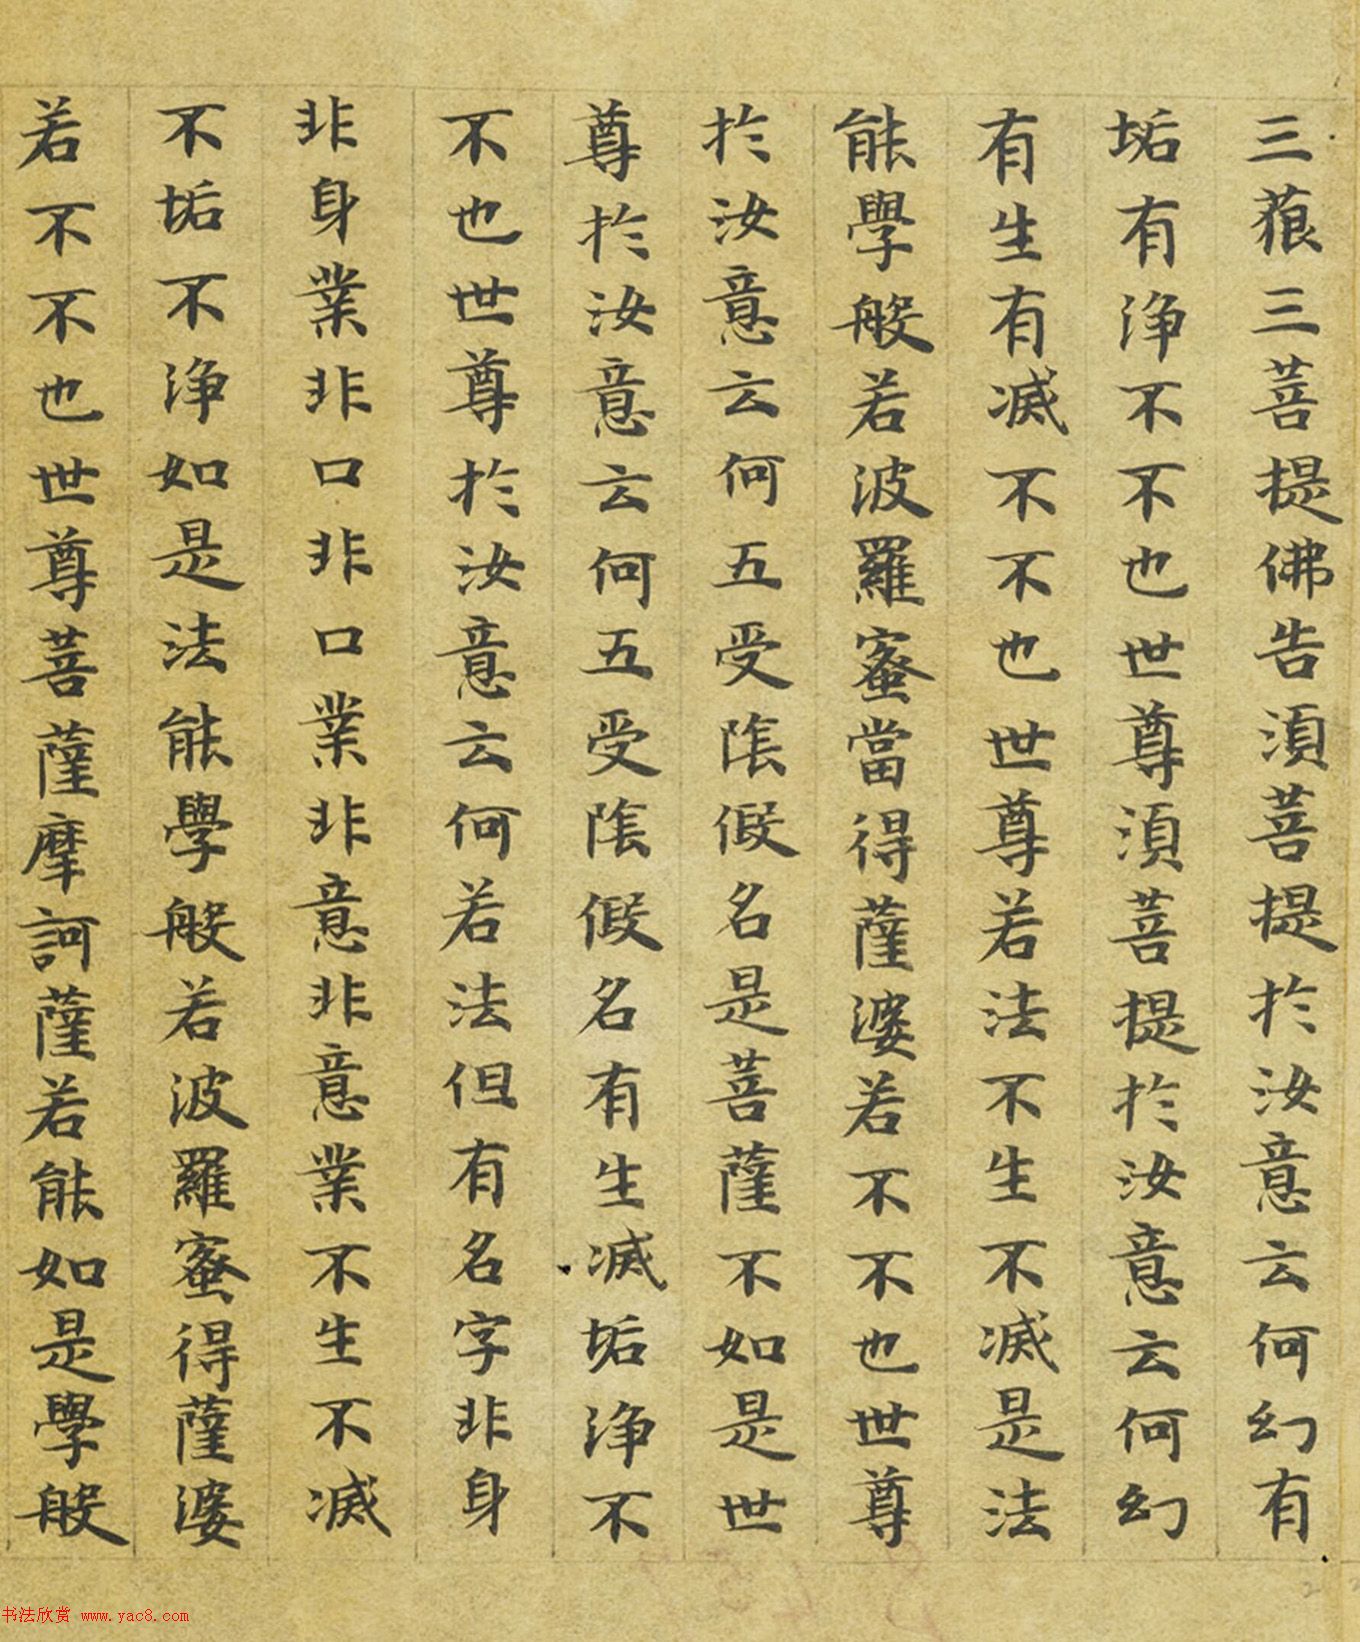 三藐三菩提佛告須菩提於汝意云何幻有
垢有淨不不也世尊須菩提於汝意云何幻
有生有滅不不也世尊若法不生不滅是法
能學般若波羅蜜當得薩婆若不不也世尊
於汝意云何五受陰假名是菩薩不如是世
尊於汝意云何五受陰假名有生滅垢淨不
不也世尊於汝意云何若法但有名字非身
非身業非口非口業非意非意業不生不滅
不垢不淨如是法能學般若波羅蜜得薩婆
若不不也世尊菩薩摩訶薩若能如是學般
书法欣赏 www.yac8.com